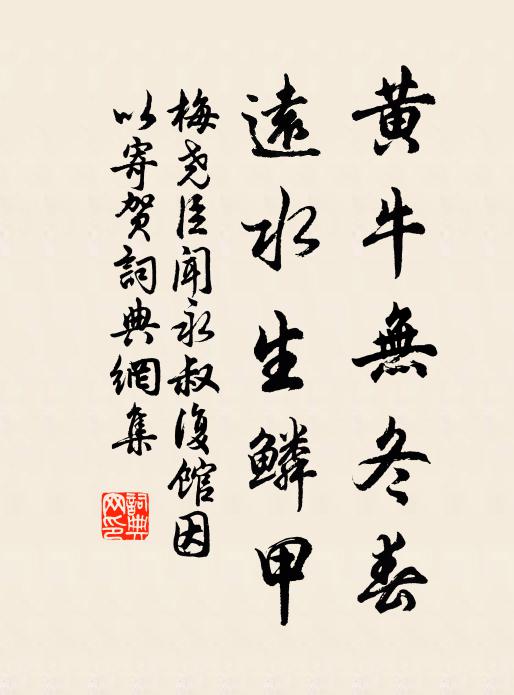 黄牛無冬春
遠水生鱗甲
梅尧臣闻永叔復館因
以寄贺詞典網集
詞典网印